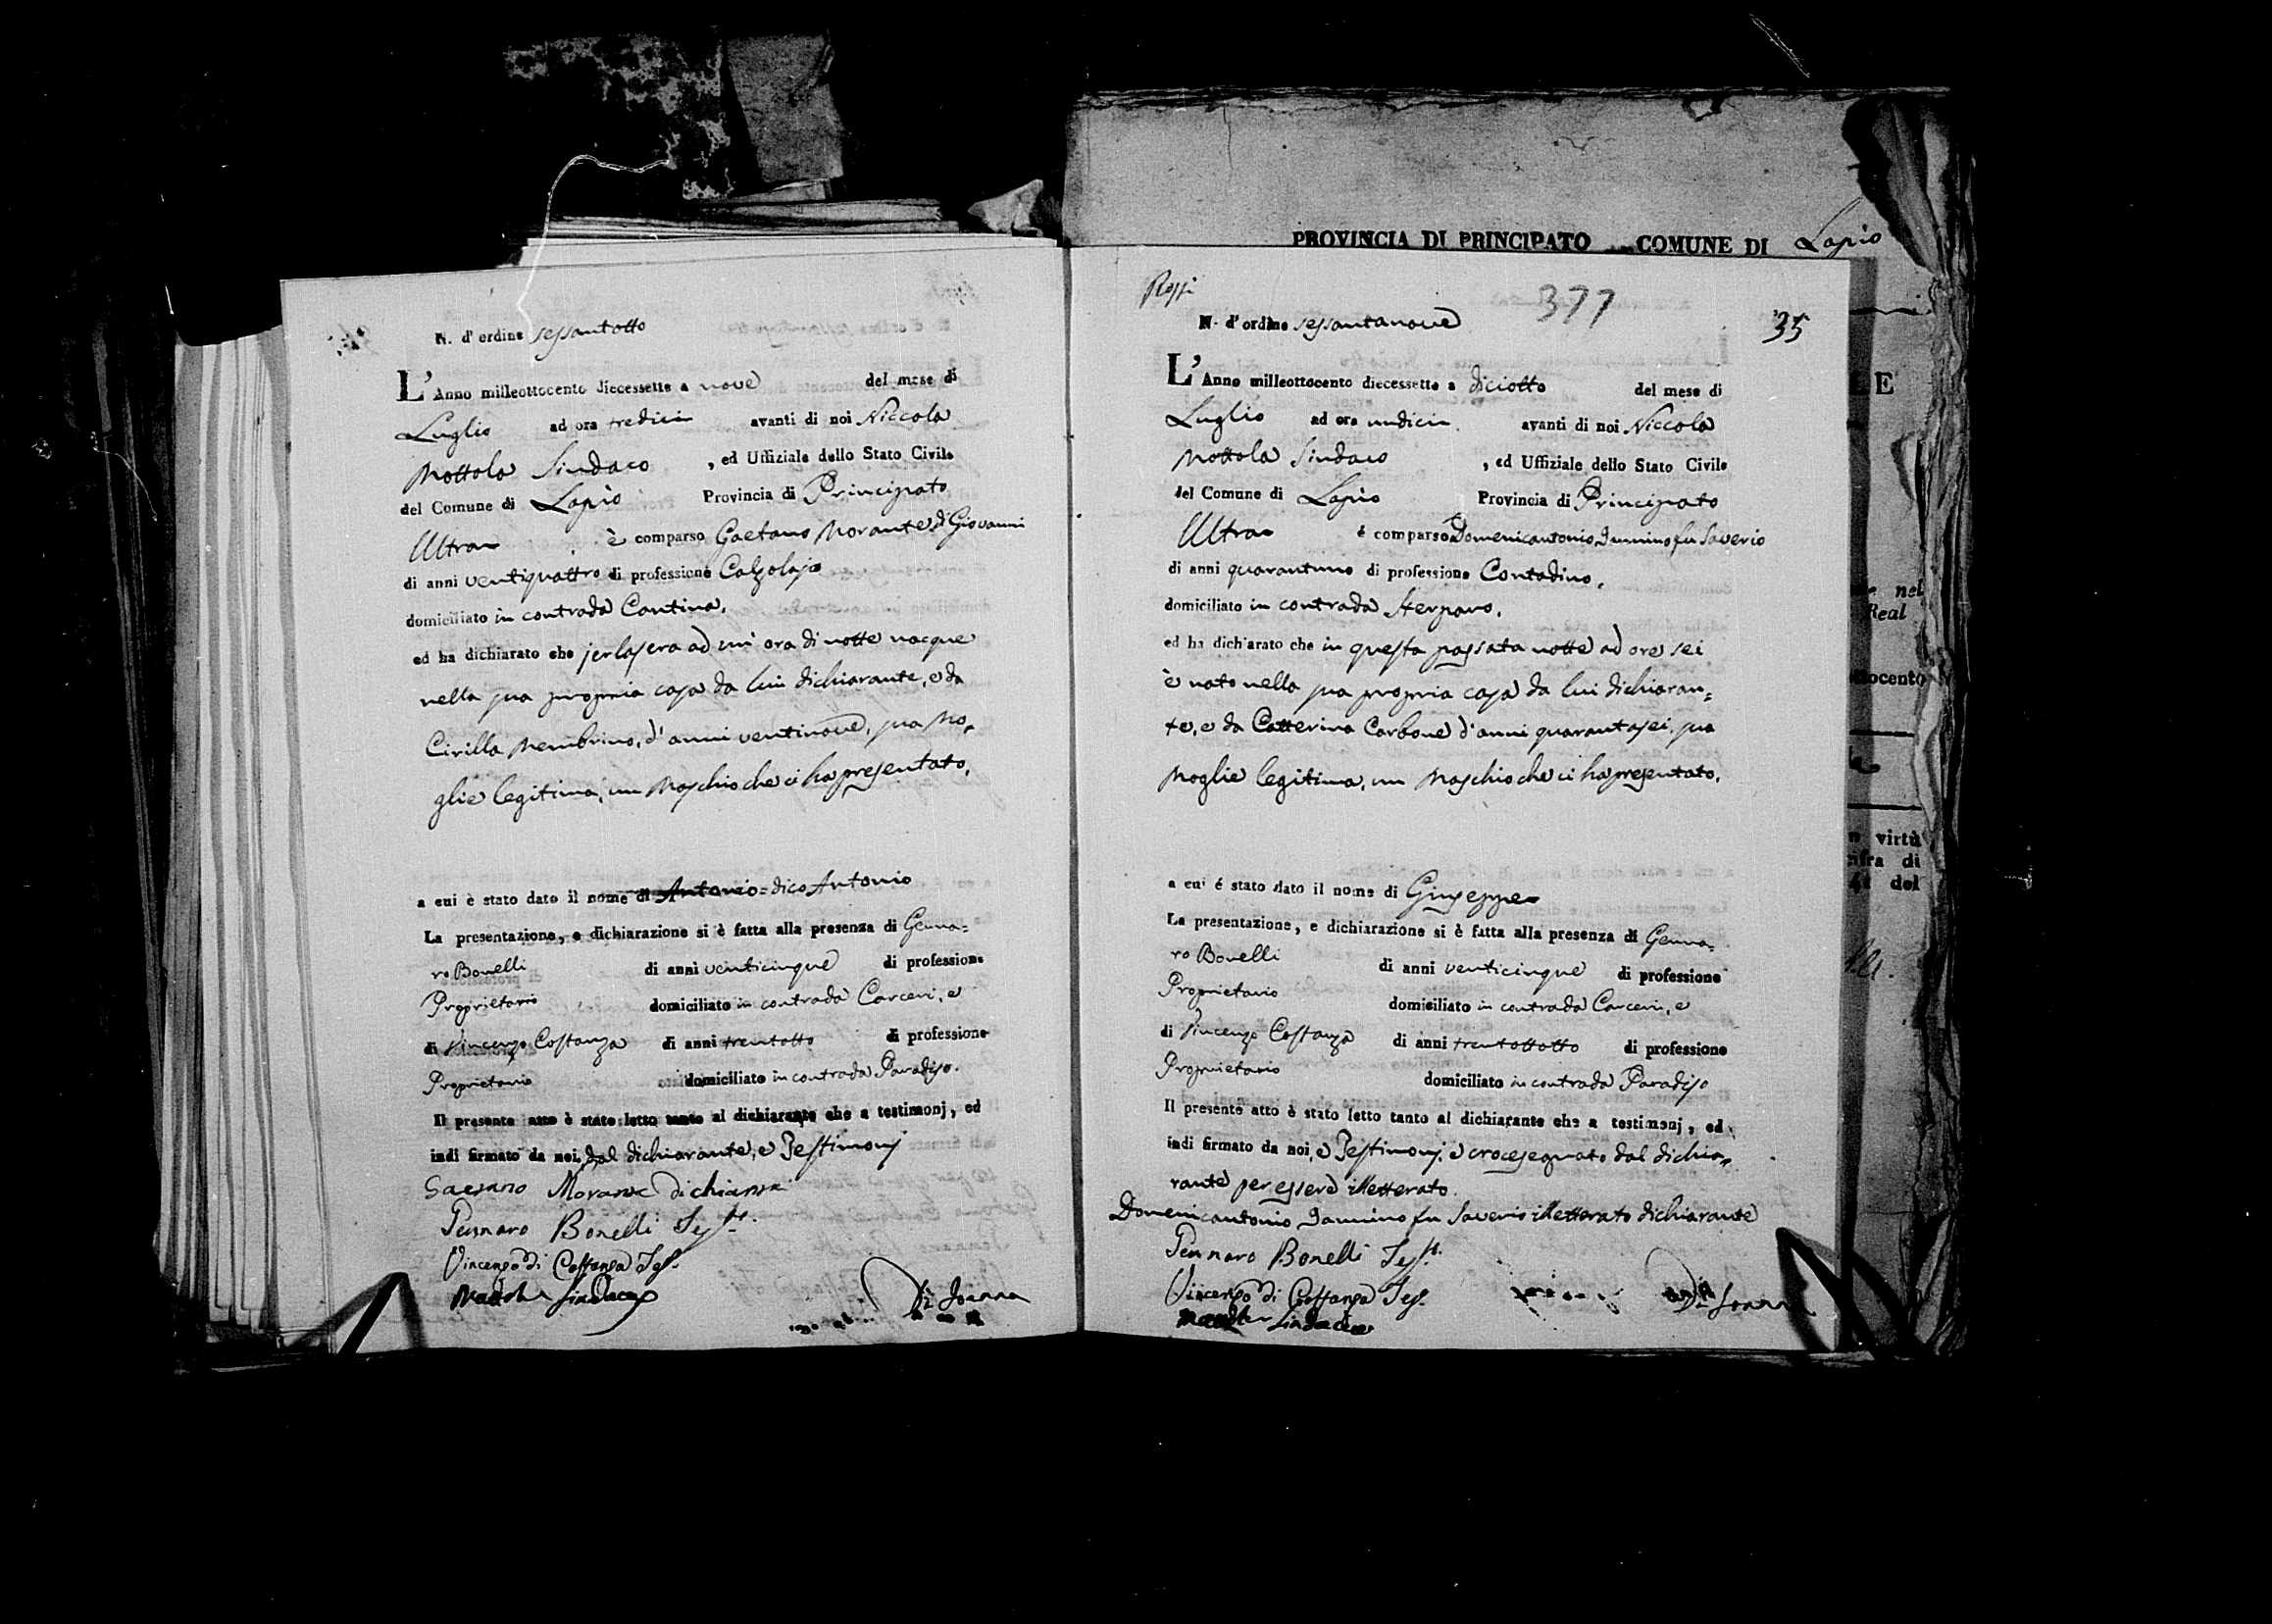 PROVINCIA DI PRINCIPATO COMUNE DI Lapio
N. d'ordine sessantotto
L'Anno milleottocento diecessette a nove del mese di
Luglio ad ora tredici avanti di noi Niccola
Mottola Sindaco , ed Uffiziale dello Stato Civile
del Comune di Lapio Provincia di Principato
Ultra è comparso Gaetano Morante di Giovanni
di anni ventiquattro di professione Calzolajo
domiciliato in contrada Cantina.
ed ha dichiarato che jerlasera ad un' ora di notte nacque
nella sua propria casa da lui dichiarante, e da
Cirilla Membrino, d'anni ventinove, sua Mo,
glie legitima, un Maschio che ci ha presentato.
a cui è stato dato il nome di Antonio = dico Antonio
La presentazione, e dichiarazione si è fatta alla presenza di Genna=
ro Bonelli di anni venticinque di professione
Proprietario domiciliato in contrada Carceri, e
di Vincenzo Costanza di anni trentotto di professione
Proprietario domiciliato in contrada Paradiso.
Il presente atto è stato letto tanto al dichiarante che a testimonj, ed
indi firmato da noi, dal dichiarante, e Testimonj
Gaetano Morante dichiarante
Gennaro Bonelli Test.
Vincenzo di Costanza Tes.
Mottola Sindaco
Di Joanna
Rossi
377
35
N. d'ordine sessantanove
L'Anno milleottocento diecessette a diciotto del mese di
Luglio ad ora undici avanti di noi Niccola
Mottola Sindaco , ed Uffiziale dello Stato Civile
del Comune di Lapio Provincia di Principato
Ultra é comparso Domenicantonio Iannino fu Saverio
di anni quarantuno di professione Contadino.
domiciliato in contrada Sterparo.
ed ha dichiarato che in questa passata notte ad ore sei
è nato nella sua propria casa da lui dichiaran=
te, e da Catterina Carbone d'anni quarantasei, sua
Moglie legitima, un Maschio che ci ha presentato.
a cui é stato dato il nome di Giuseppe
La presentazione, e dichiarazione si è fatta alla presenza di Genna=
ro Bonelli di anni venticinque di professione
Proprietario domiciliato in contrada Carceri, e
di Vincenzo Costanza di anni trentottotto di professione
Proprietario domiciliato in contrada Paradiso
Il presente atto è stato letto tanto al dichiarante che a testimonj, ed
indi firmato da noi, e Testimonj, e crocesegnato dal dichia=
rante per essere illetterato.
Domenicantonio Iannino fu Saverio illetterato dichiarante
Gennaro Bonelli Test.
Vincenzo di Costanza Tes.
Mottola Sindaco
Di Joanna
E
nel
Real
ttocento
virtù
di
del